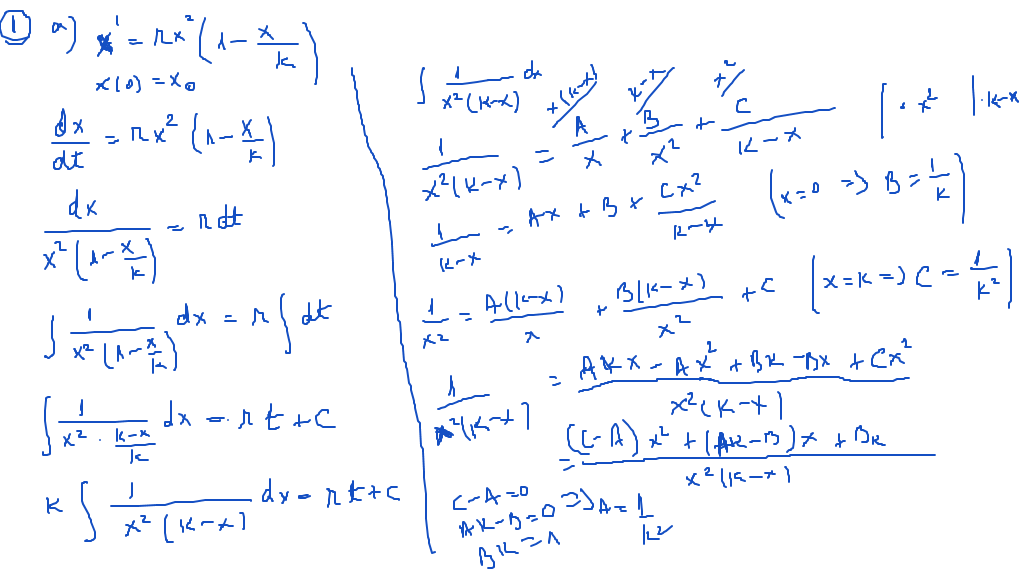 ① a) x' = rx²(1 - x/k)
x(0) = x₀
dx/dt = rx²(1 - x/k)
dx/(x²(1 - x/k)) = r dt
∫ 1/(x²(1 - x/k)) dx = r ∫ dt
∫ 1/(x² · (k-x)/k) dx = rt + C
k ∫ 1/(x²(k-x)) dx = rt + C
∫ 1/(x²(k-x)) dx
1/(x²(k-x)) = A/x + B/x² + C/(k-x) | · x² | · k-x
1/(k-x) = Ax + B + Cx²/(k-x) (x=0 => B = 1/k)
1/x² = A(k-x)/x + B(k-x)/x² + C (x=k => C = 1/k²)
1/(x²(k-x)) = (Akx - Ax² + Bk - Bx + Cx²)/(x²(k-x))
= ((C-A)x² + (Ak-B)x + Bk)/(x²(k-x))
C-A=0
Ak-B=0 => A = 1/k²
Bk=1